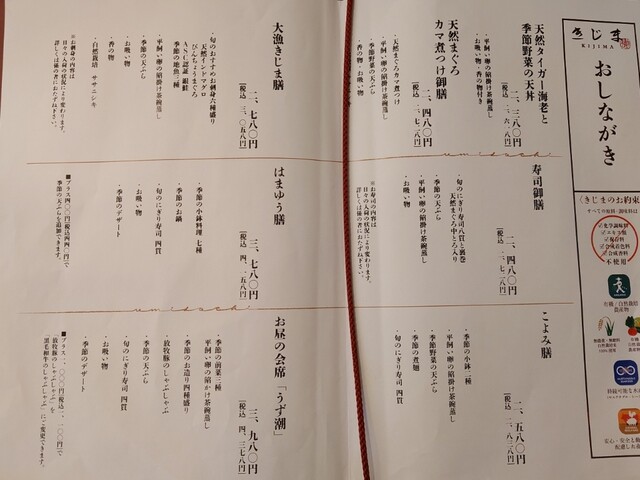 きじま
KIJIMA
おしながき
〈きじまのお約束
すべての料理・調味料は
✓化学調味料
✓エキス類
✓保存料
✓合成着色料
✓合成香料
不使用
有機/自然栽培
農産物
無農薬・無肥料
自然栽培米
100%使用
天然タイガー海老と
季節野菜の天丼
・平飼い卵の餡掛け茶碗蒸し
・お吸い物・香の物付き
天然まぐろ
カマ煮つけ御膳
二、四八〇円
・天然まぐろカマ煮つけ
・平飼い卵の餡掛け茶碗蒸し
・季節野菜の天ぷら
・香の物・お吸い物
大漁きじま膳
二、七八〇円
(税込 三、〇五八円)
・旬のおすすめお刺身六種盛り
天然インドマグロ
びんちょうまぐろ
ASC認証 銀鮭
季節の地魚三種
・平飼い卵の餡掛け茶碗蒸し
・季節の天ぷら
・お吸い物
・香の物
・自然栽培 ササニシキ
※お刺身の内容は
日々の入荷の状況により変わります。
詳しくは係の者におたずね下さい。
umidachi
寿司御膳
二、四八〇円
(税込 二、七二八円)
・旬のにぎり寿司八貫と鉄巻
天然まぐろ中とろ入り
・季節の天ぷら
・平飼い卵の餡掛け茶碗蒸し
・お吸い物
※お寿司の内容は
日々の入荷の状況により変わります。
詳しくは係の者におたずね下さい。
はまゆう膳
三、七八〇円
(税込 四、一五八円)
・季節の小鉢料理 七種
・季節のお鍋
・旬のにぎり寿司 四貫
・お吸い物
・季節のデザート
■プラス四〇〇円(税込四四〇円)で
季節の天ぷらを追加できます。
umidachi
こよみ膳
二、五八〇円
(税込 二、八三八円)
・季節の小鉢二種
・平飼い卵の餡掛け茶碗蒸し
・季節野菜の天ぷら
・季節の煮麺
・旬のにぎり寿司 四貫
お昼の会席「うず潮」
三、九八〇円
(税込 四、三七八円)
・季節の前菜三種
・平飼い卵の餡掛け茶碗蒸し
・季節のお造り四種盛り
・放牧豚のしゃぶしゃぶ
・季節の天ぷら
・旬のにぎり寿司 四貫
・お吸い物
・季節のデザート
■プラス一、〇〇〇円(税込一、一〇〇円)で
「放牧豚のしゃぶしゃぶ」を
「黒毛和牛のしゃぶしゃぶ」に変更できます。